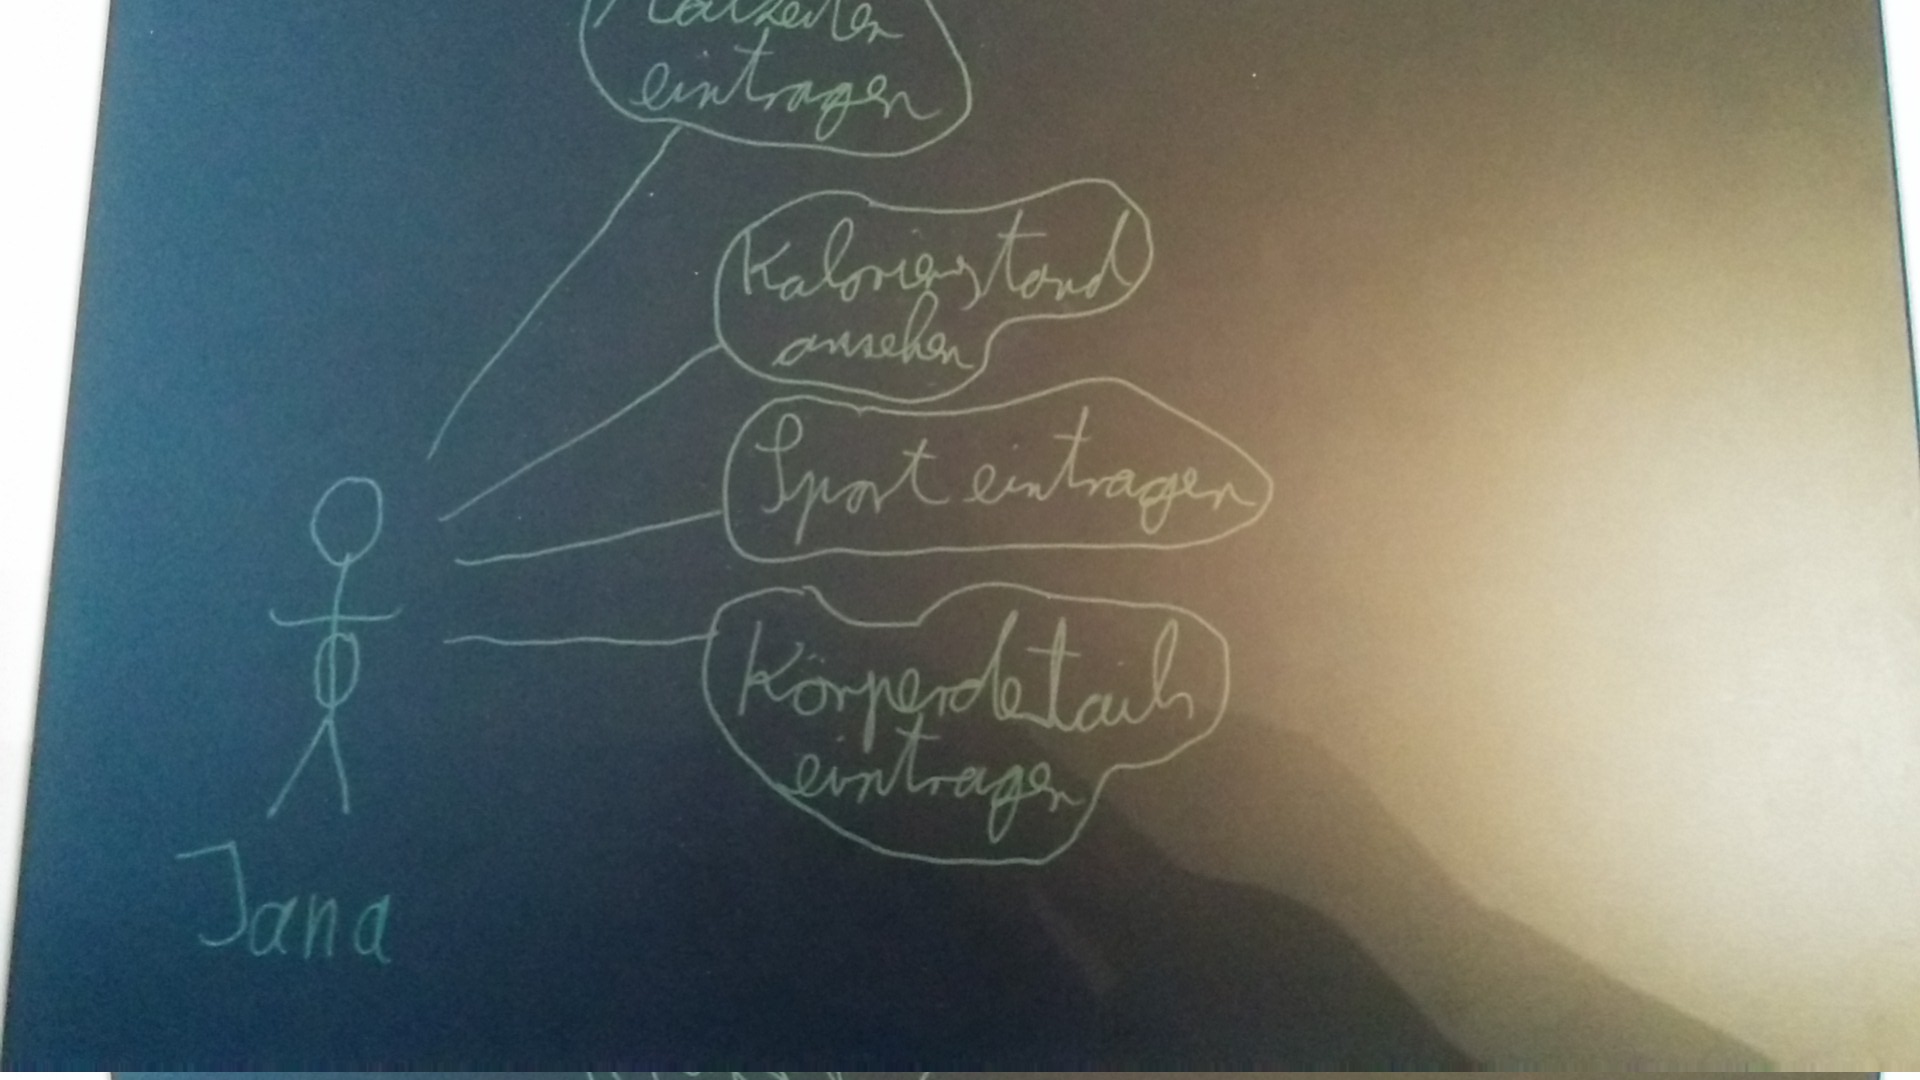 eintragen
Kalorienstand
ansehen
Sport eintragen
Körperdetails
eintragen
Jana